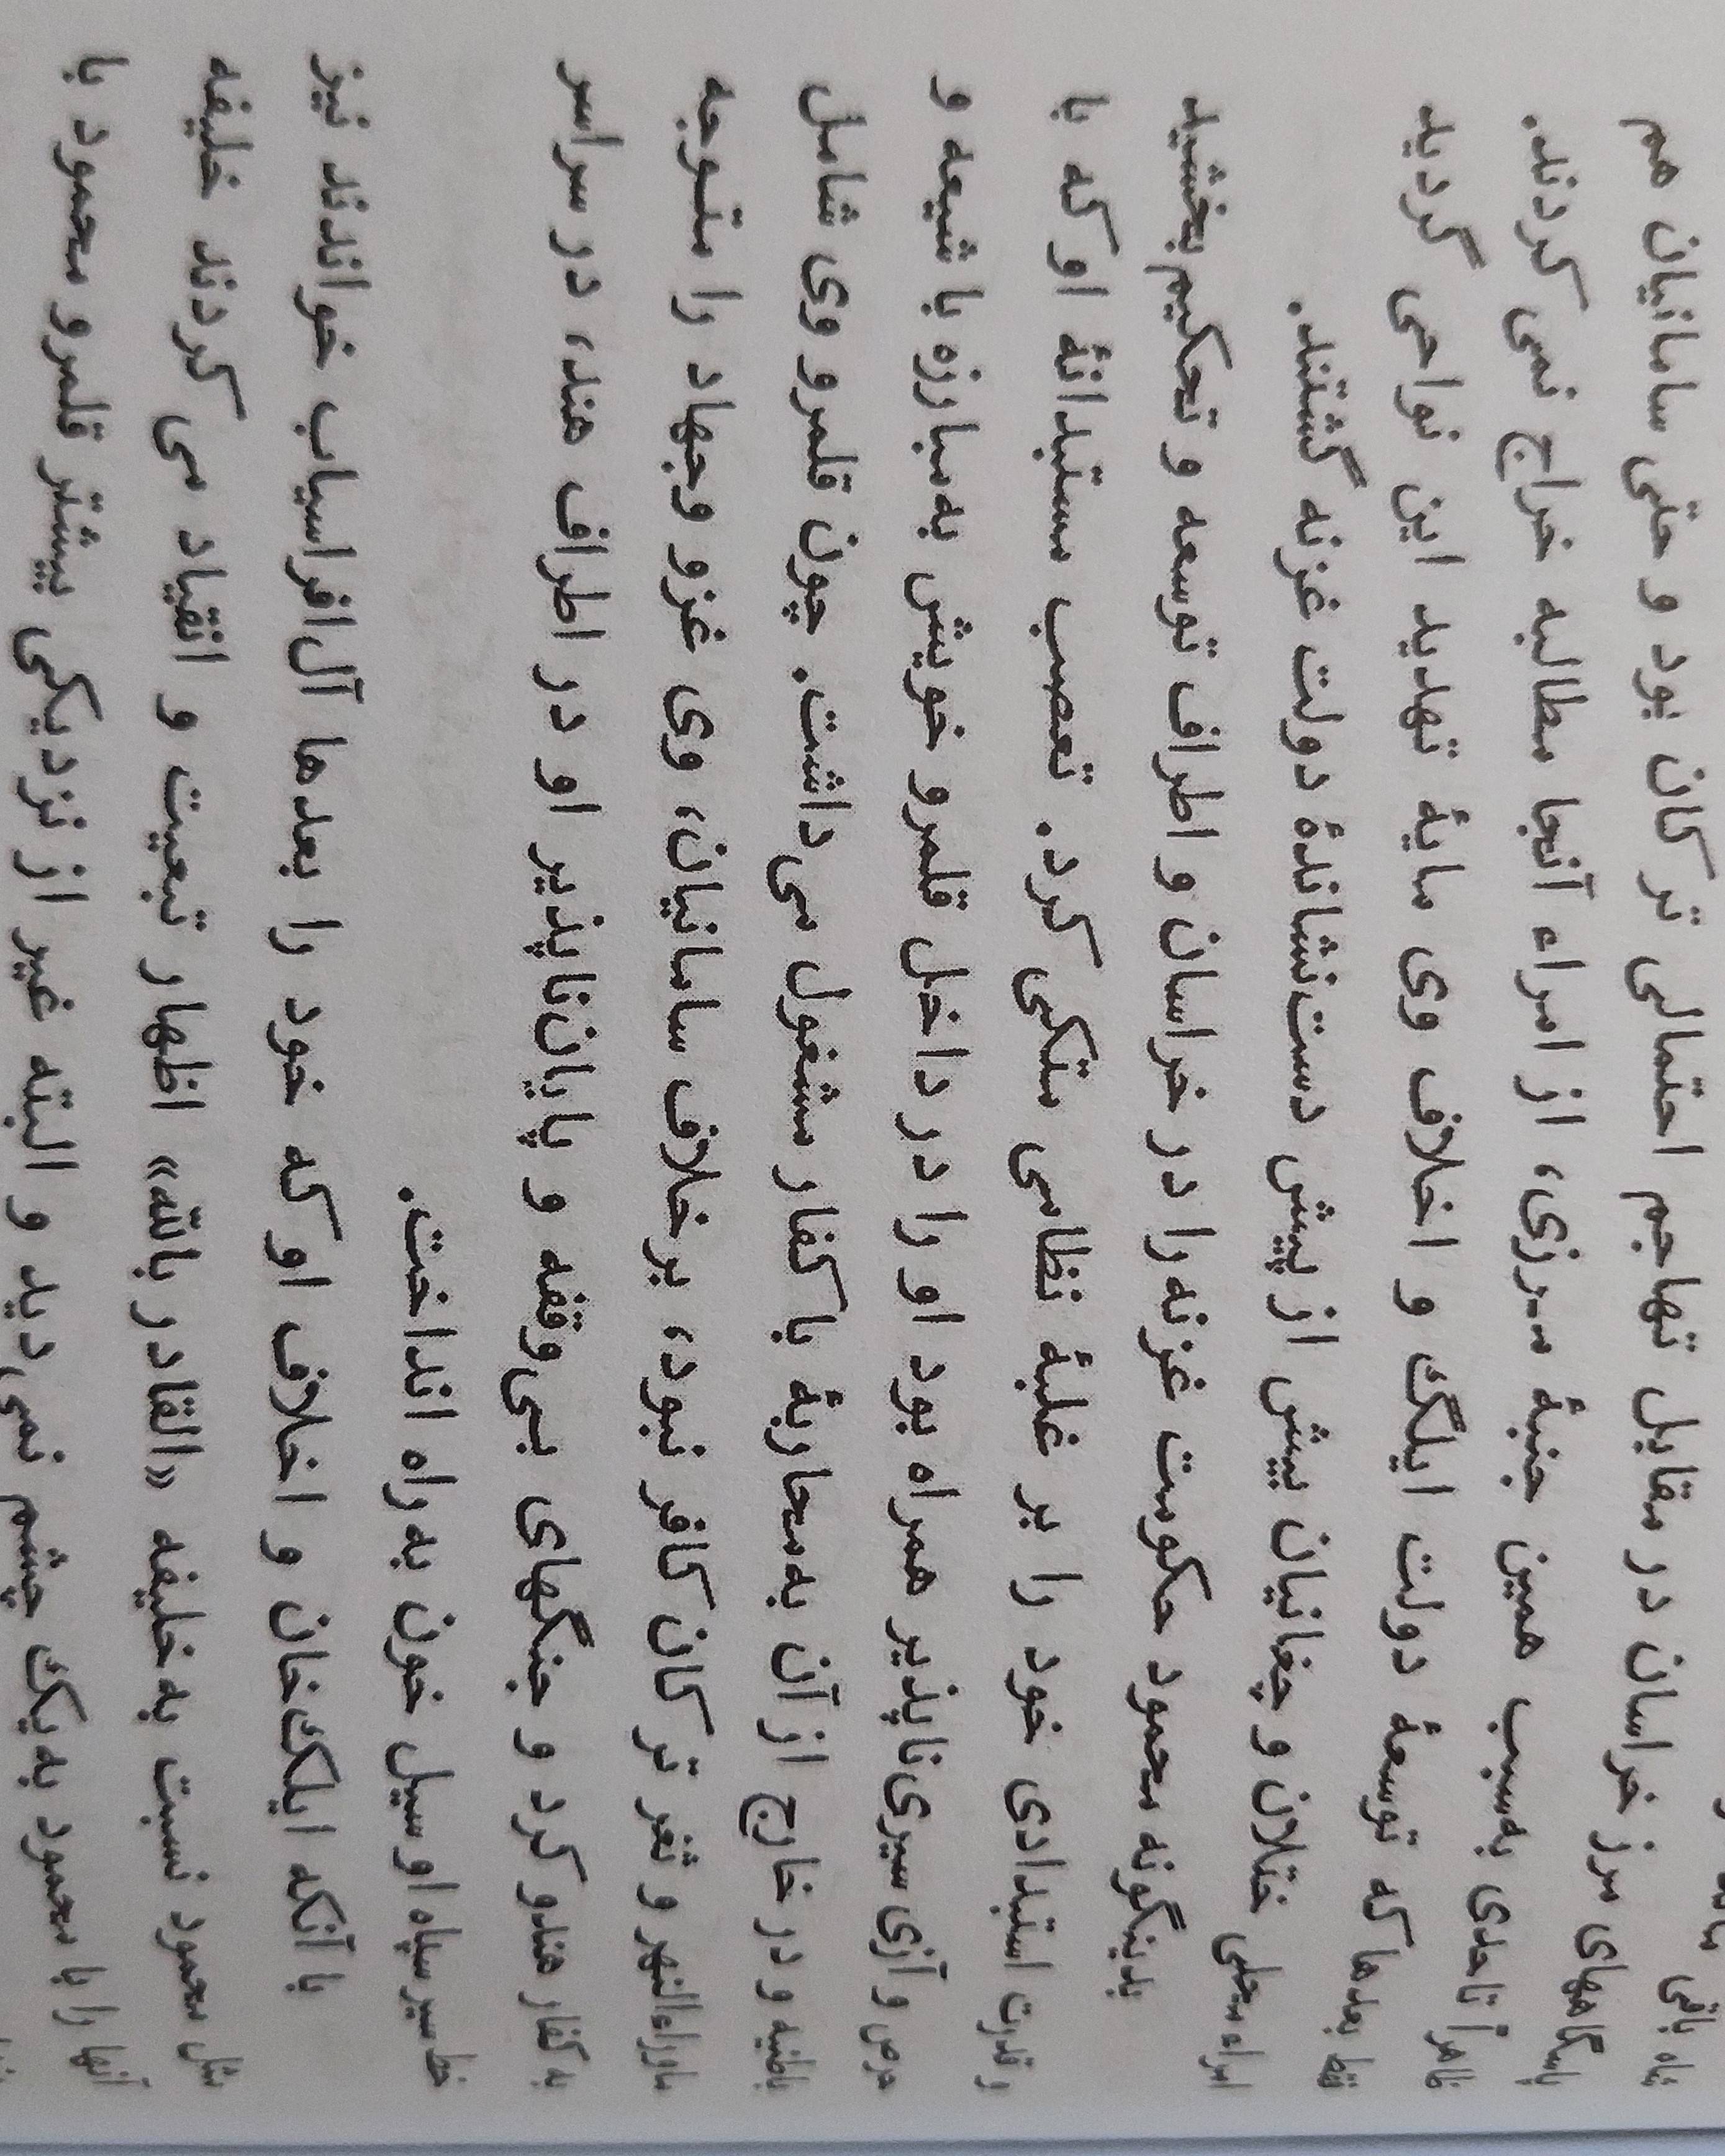 باقی
پاسگاههای مرز خراسان در مقابل تهاجم احتمالی ترکان بود و حتی سامانیان هم
ظاهراً تاحدی به‌سبب همین جنبهٔ مرزی، از امراء آنجا مطالبه خراج نمی کردند.
فقط بعدها که توسعهٔ دولت ایلگ و اخلاف وی مایهٔ تهدید این نواحی گردید
امراء محلی ختلان و چغانیان بیش از پیش دست‌نشاندهٔ دولت غزنه گشتند.
بدینگونه محمود حکومت غزنه را در خراسان و اطراف توسعه و تحکیم بخشید
و قدرت استبدادی خود را بر غلبهٔ نظامی متکی کرد. تعصب مستبدانهٔ او که با
حرص و آزی سیری‌ناپذیر همراه بود او را در داخل قلمرو خویش به‌مبارزه با شیعه و
باطنیه و در خارج از آن به‌محاربهٔ با کفار مشغول می‌داشت. چون قلمرو وی شامل
ماوراءالنهر و ثغر ترکان کافر نبود، برخلاف سامانیان، وی غزو وجهاد را متوجه
به کفار هندو کرد و جنگهای بی‌وقفه و پایان‌ناپذیر او در اطراف هند، در سراسر
خط سیر سپاه او سیل خون به‌راه انداخت.
با آنکه ایلک‌خان و اخلاف او که خود را بعدها آل‌افراسیاب خواندند نیز
مثل محمود نسبت به‌خلیفه «القادر بالله» اظهار تبعیت و انقیاد می کردند خلیفه
آنها را با محمود به‌یک چشم نمی‌دید و البته غیر از نزدیکی بیشتر قلمرو محمود با